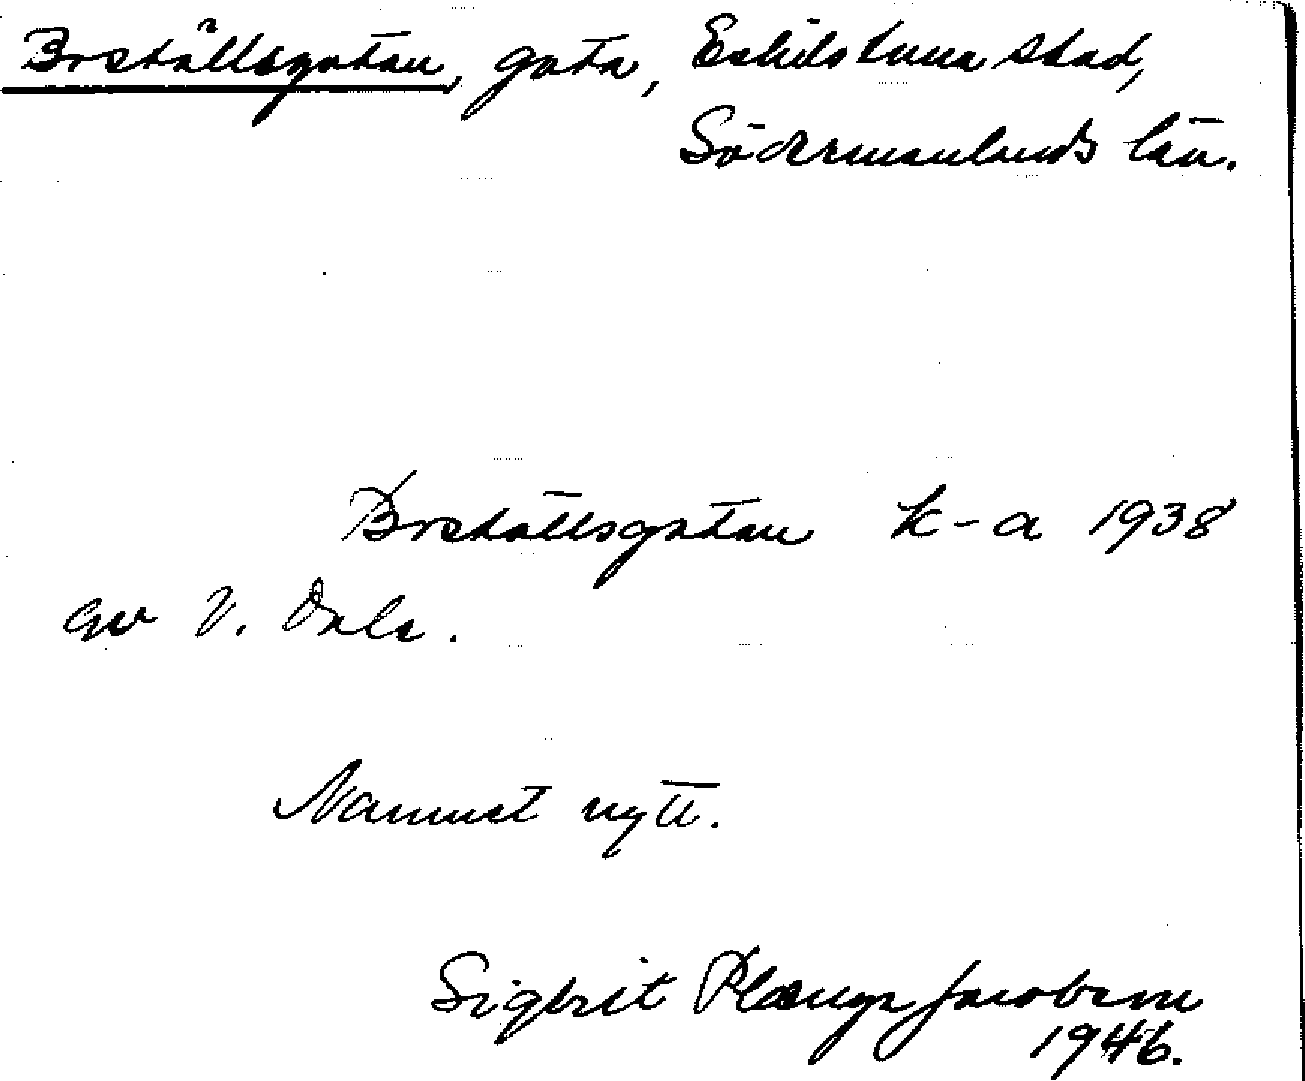 Boställsgatan, gata, Eskilstuna stad,
Södermanlands län.
Boställsgatan k-a 1938
av V. Dala.
Namnet nytt.
Sigbrit Plænge Jacobson
1946.